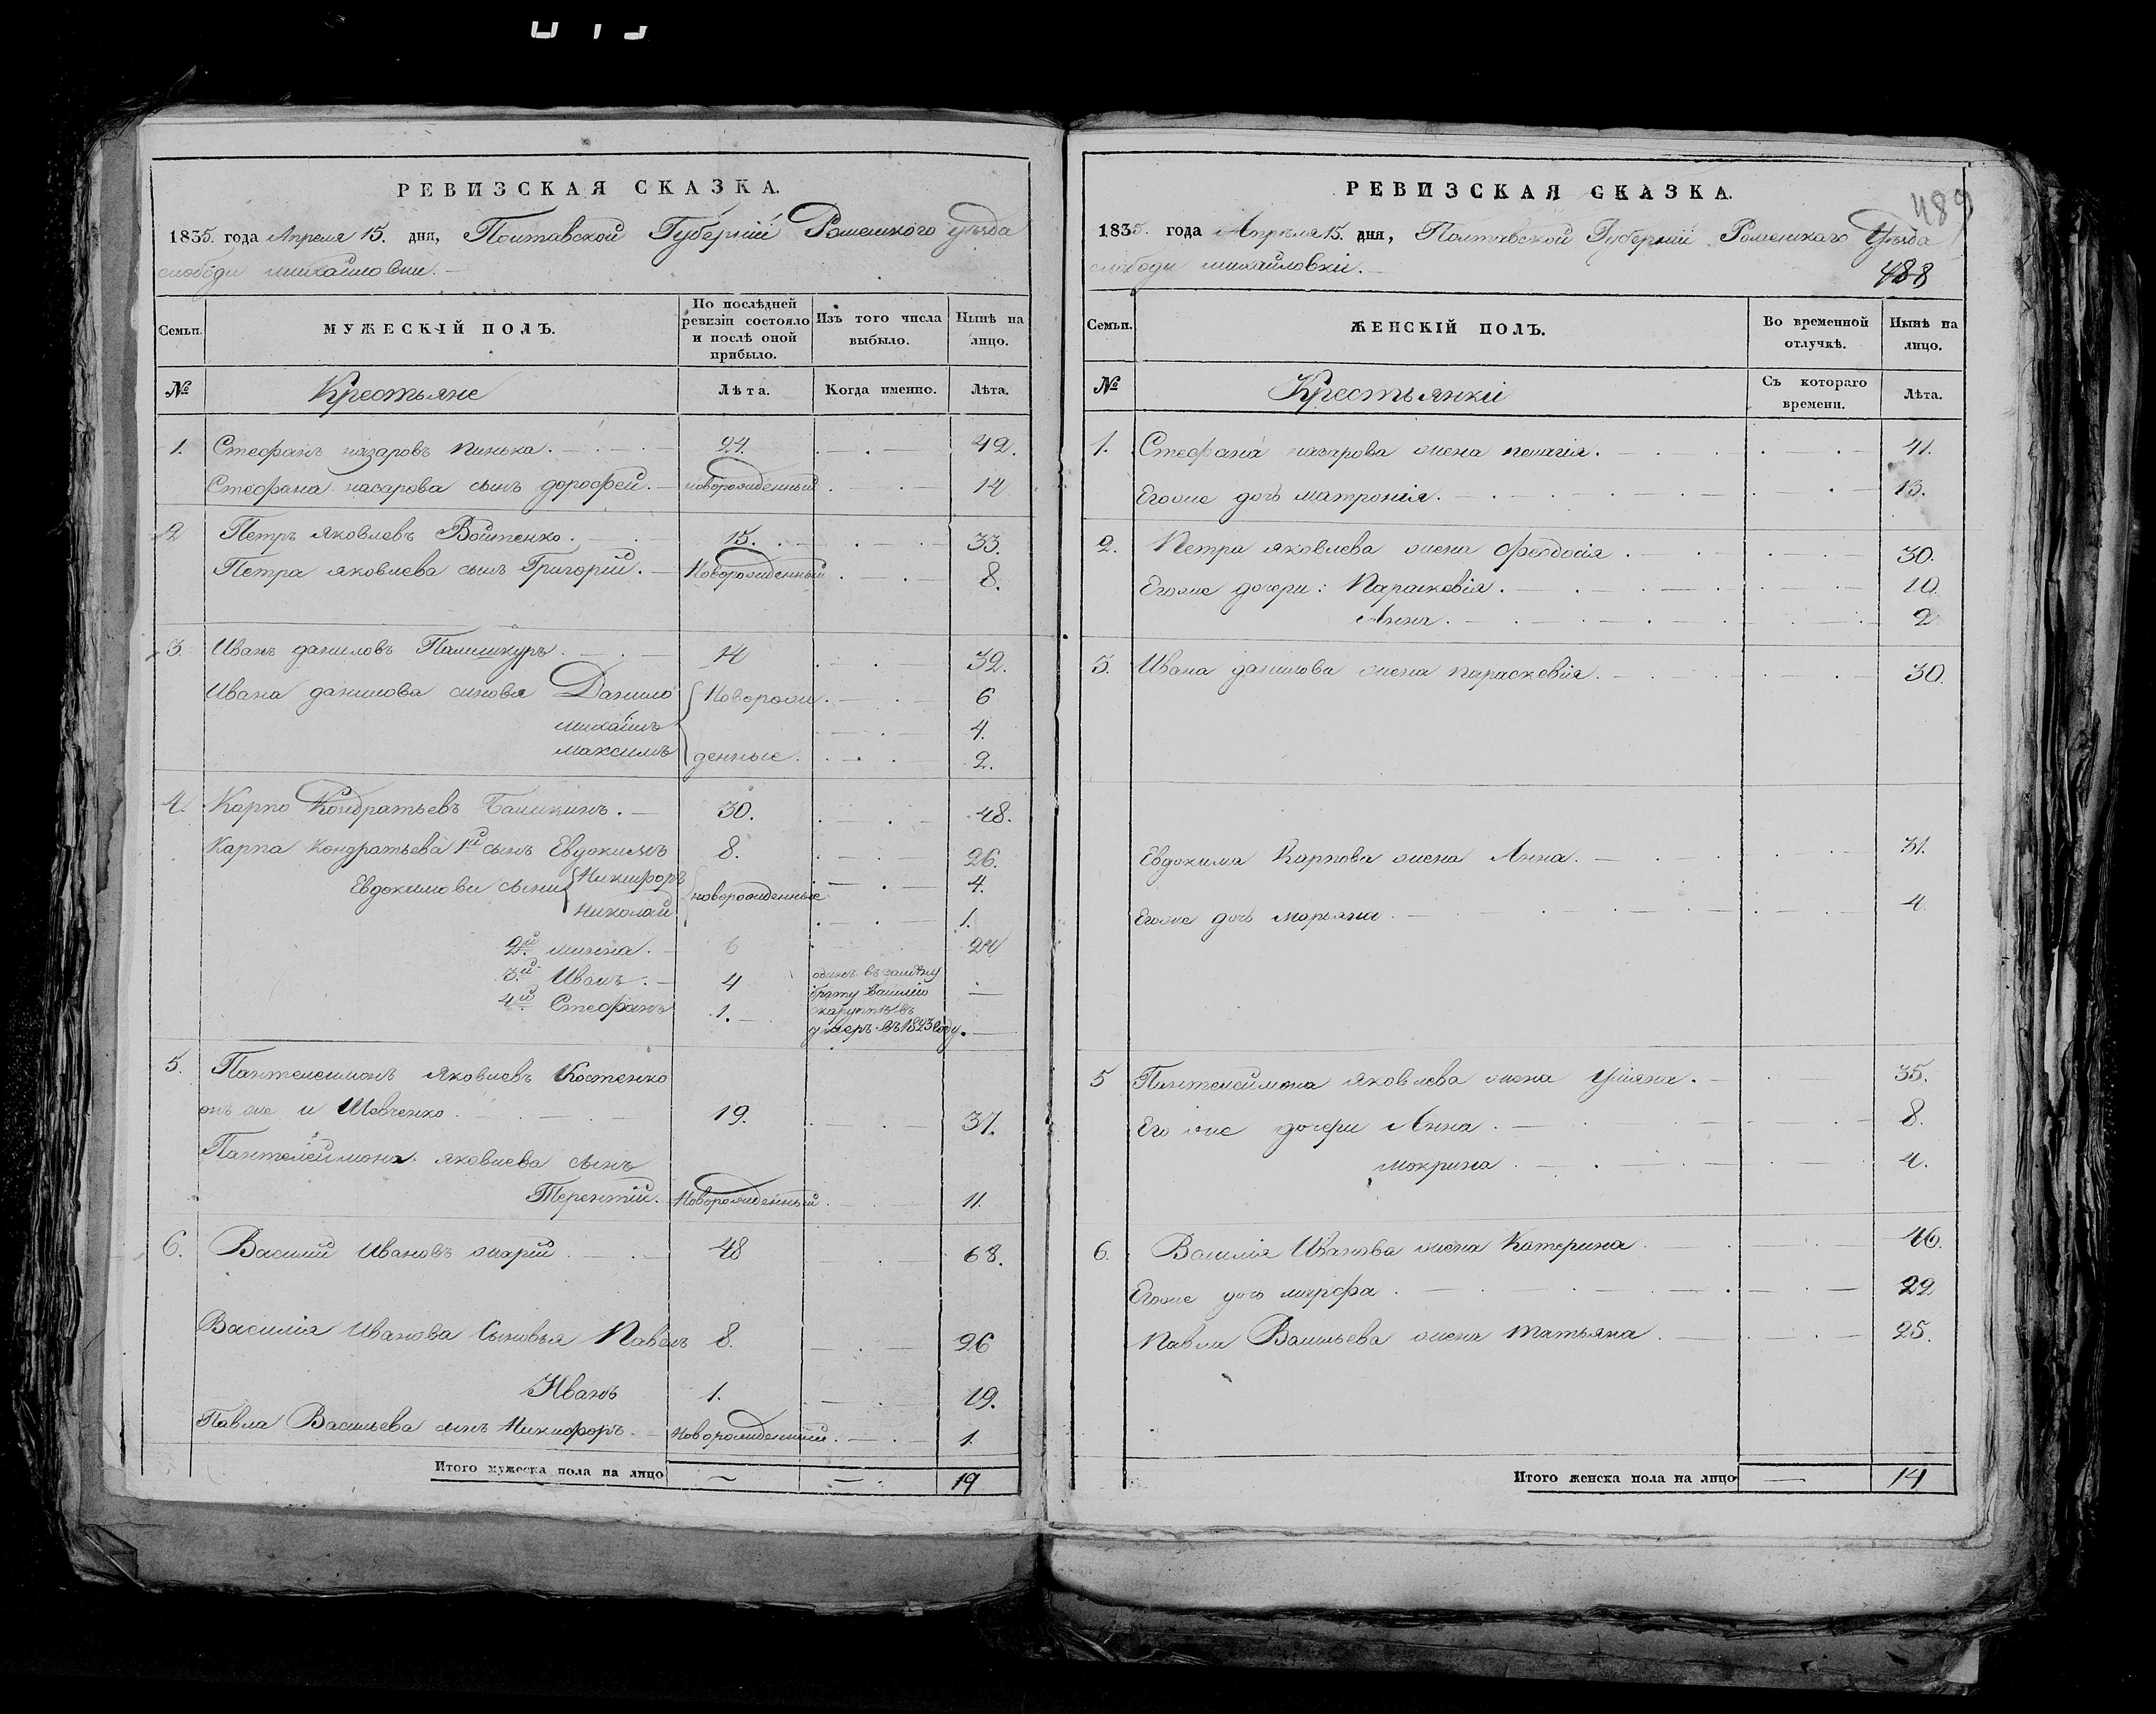 РЕВИЗСКАЯ СКАЗКА.
1835. года Апреля 15. дня, Полтавской Губерніи Роменского уѣзда
слободи михайловки.
Семьи. МУЖЕСКІЙ ПОЛЪ. По послѣдней ревизіи состояло и послѣ оной прибыло. Изъ того числа выбыло. Нынѣ на лицо.
№ Крестьяне Лѣта. Когда именно. Лѣта.
1. Стефанъ назаровъ Пинька. 24. 42.
Стефана насарова сынъ дорофей. новорожденный 14
2 Петръ яковлевъ Войтенко. 15. 33.
Петра яковлева сынъ Григорій. Новорожденный 8.
3. Иванъ даниловъ Палишкуръ. 14 32.
Ивана данилова синовя Данило Новорож 6
михайлъ 4.
максимъ денные. 2.
4. Карпо Кондратьевъ Башкинъ. 30. 48.
Карпа кондратьева 1й сынъ Евдокимъ 8. 26.
Евдокимови сыни Никифоръ новорожденные 4.
Николай 1.
2й минна. 6 24
3й Иванъ. 4
брату василію
4й Стефанъ 1.
умеръ въ 1823 году.
5. Пантелеимонъ Яковлевъ Костенко
онъ же и Шевченко. 19. 37.
Пантелеймона яковлева сынъ
Терентій. Новорожденный 11.
6. Василій Ивановъ 48 68.
Василія Иванова Сыновья Павелъ 8. 26
Иванъ 1. 19.
Павла Васильева сынъ Никифоръ. Новорожденный. 1.
Итого мужеска пола на лицо 19
РЕВИЗСКАЯ СКАЗКА.
489
1835. года Апрѣля 15. дня, Полтавской Губерніи Роменскаго Уѣзда
слободи михайловкіи.
488
Семьи. ЖЕНСКІЙ ПОЛЪ. Во временной отлучкѣ. Нынѣ на лицо.
№ Крестьянкіи Съ котораго времени. Лѣта.
1. Стефана назарова жена пелагія. 41.
Егоже дочъ матронія. 13.
2. Петра яковлева жена Феодосія. 30.
Егоже дочери: Параскевія. 10.
Анна. 2
3. Ивана данилова жена параскевія. 30.
Евдокима Карпова жена Анна. 31.
Егоже дочь марьяна 4.
5 Пантелеймона яковлева жена Уліяна. 35.
Его же дочери Анна. 8.
мокрина 4.
6. Василія Иванова жена Катерина 46.
Егоже дочъ марфа 22
Павла Васильева жена татьяна 25.
Итого женска пола на лицо 14